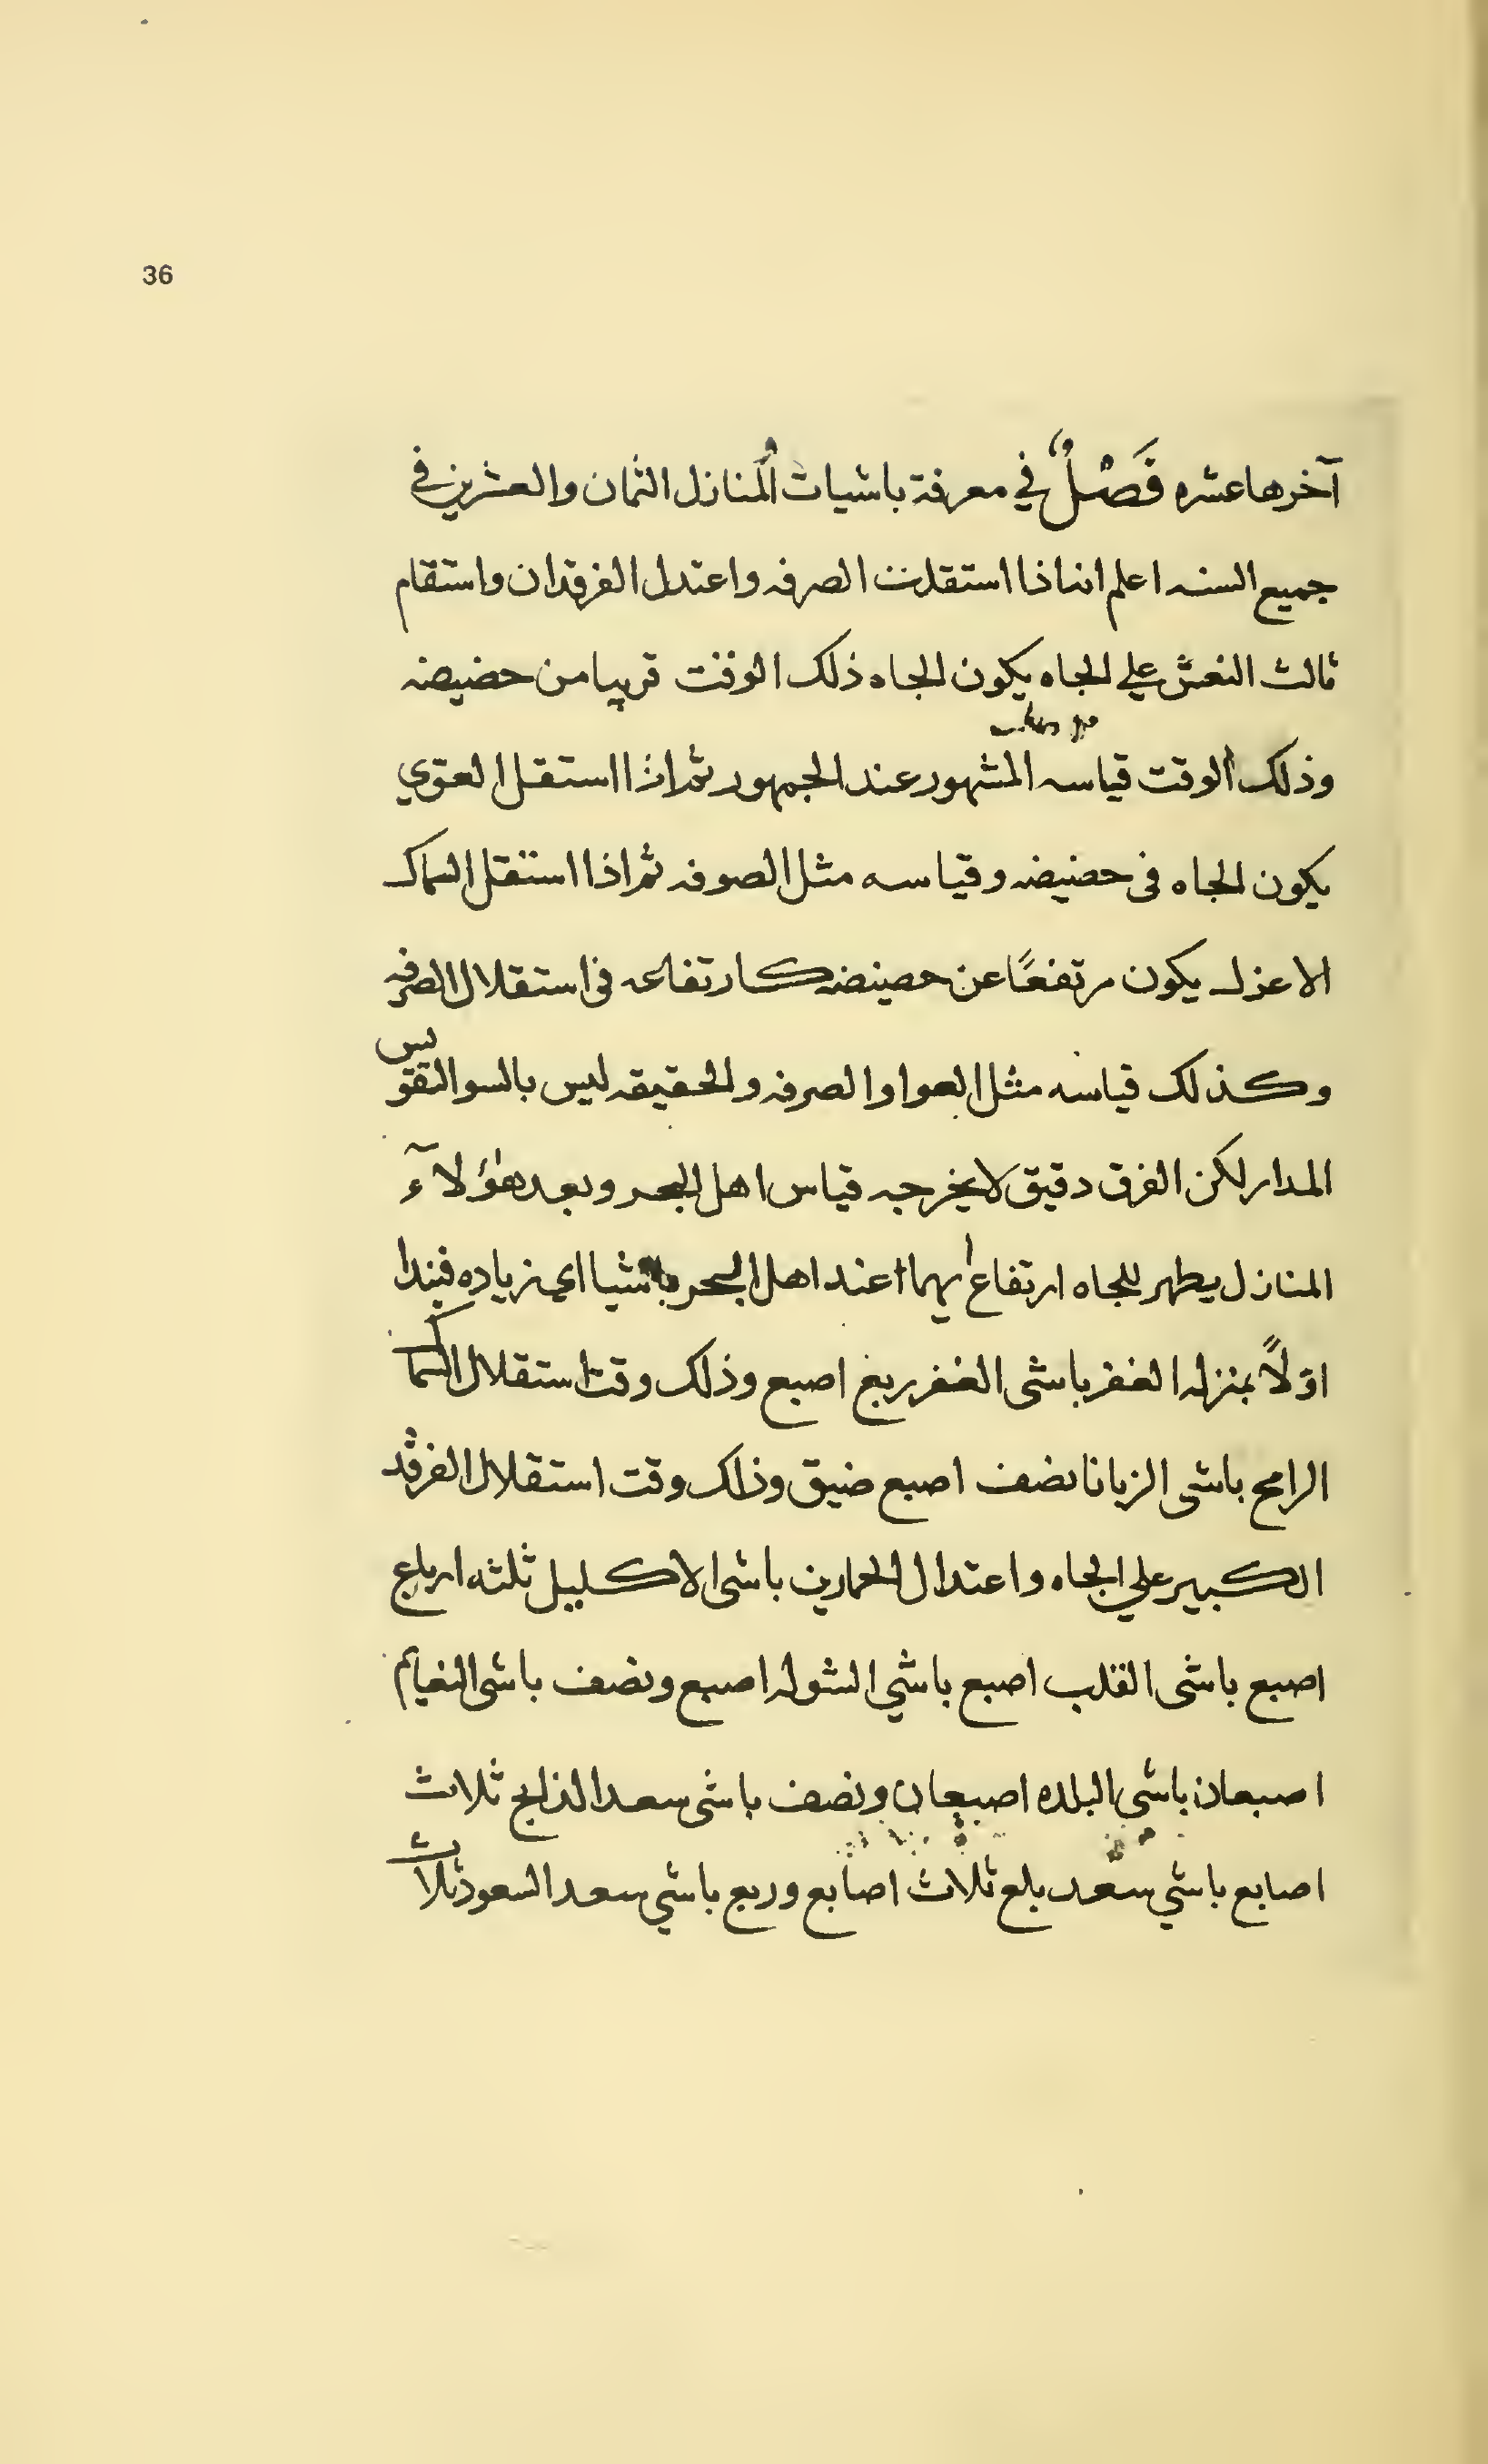 36
آخرها عشره فَصْلٌ في معرفة باشيات المنازل الثمان والعشرين في
جميع السنه اعلم اننا اذا استقلت الصرفه واعتدل الفرقدان واستقام
ثالث النعش علي الجاه يكون الجاه ذلك الوقت قريبا من حضيضه
وذلك الوقت قياسه المشهور عند الجمهور ثم اذا استقل العوي
يكون الجاه فى حضيضه وقياسه مثل الصرفه ثم اذا استقل السماك
الاعزل يكون مرتفعًا عن حضيضه كارتفاعه فى استقلال الصرفه
وكذلك قياسه مثل العوا والصرفه والحقيقه ليس بالسوا لتقويس
المدار لكن الفرق دقيق لا يخرجه قياس اهل البحر وبعد هؤلآء
المنازل يطهر للجاه ارتفاع عند اهل البحر باشيا اي زياده فنبدا
اوّلاً بمنزله الغفر باشى الغفر ربع اصبع وذلك وقت استقلال السماك
الرامح باشى الزبانا نصف اصبع ضيق وذلك وقت استقلال الفرقد
الكبير علي الجاه واعتدال الحمارين باشى الاكليل ثلثه ارباع
اصبع باشى القلب اصبع باشي الشوله اصبع ونصف باشى النعايم
اصبعان باشي البلده اصبعان ونصف باشى سعد الذابح ثلاث
اصابع باشي سعد بلع ثلاث اصابع وربع باشي سعد السعود ثلاث